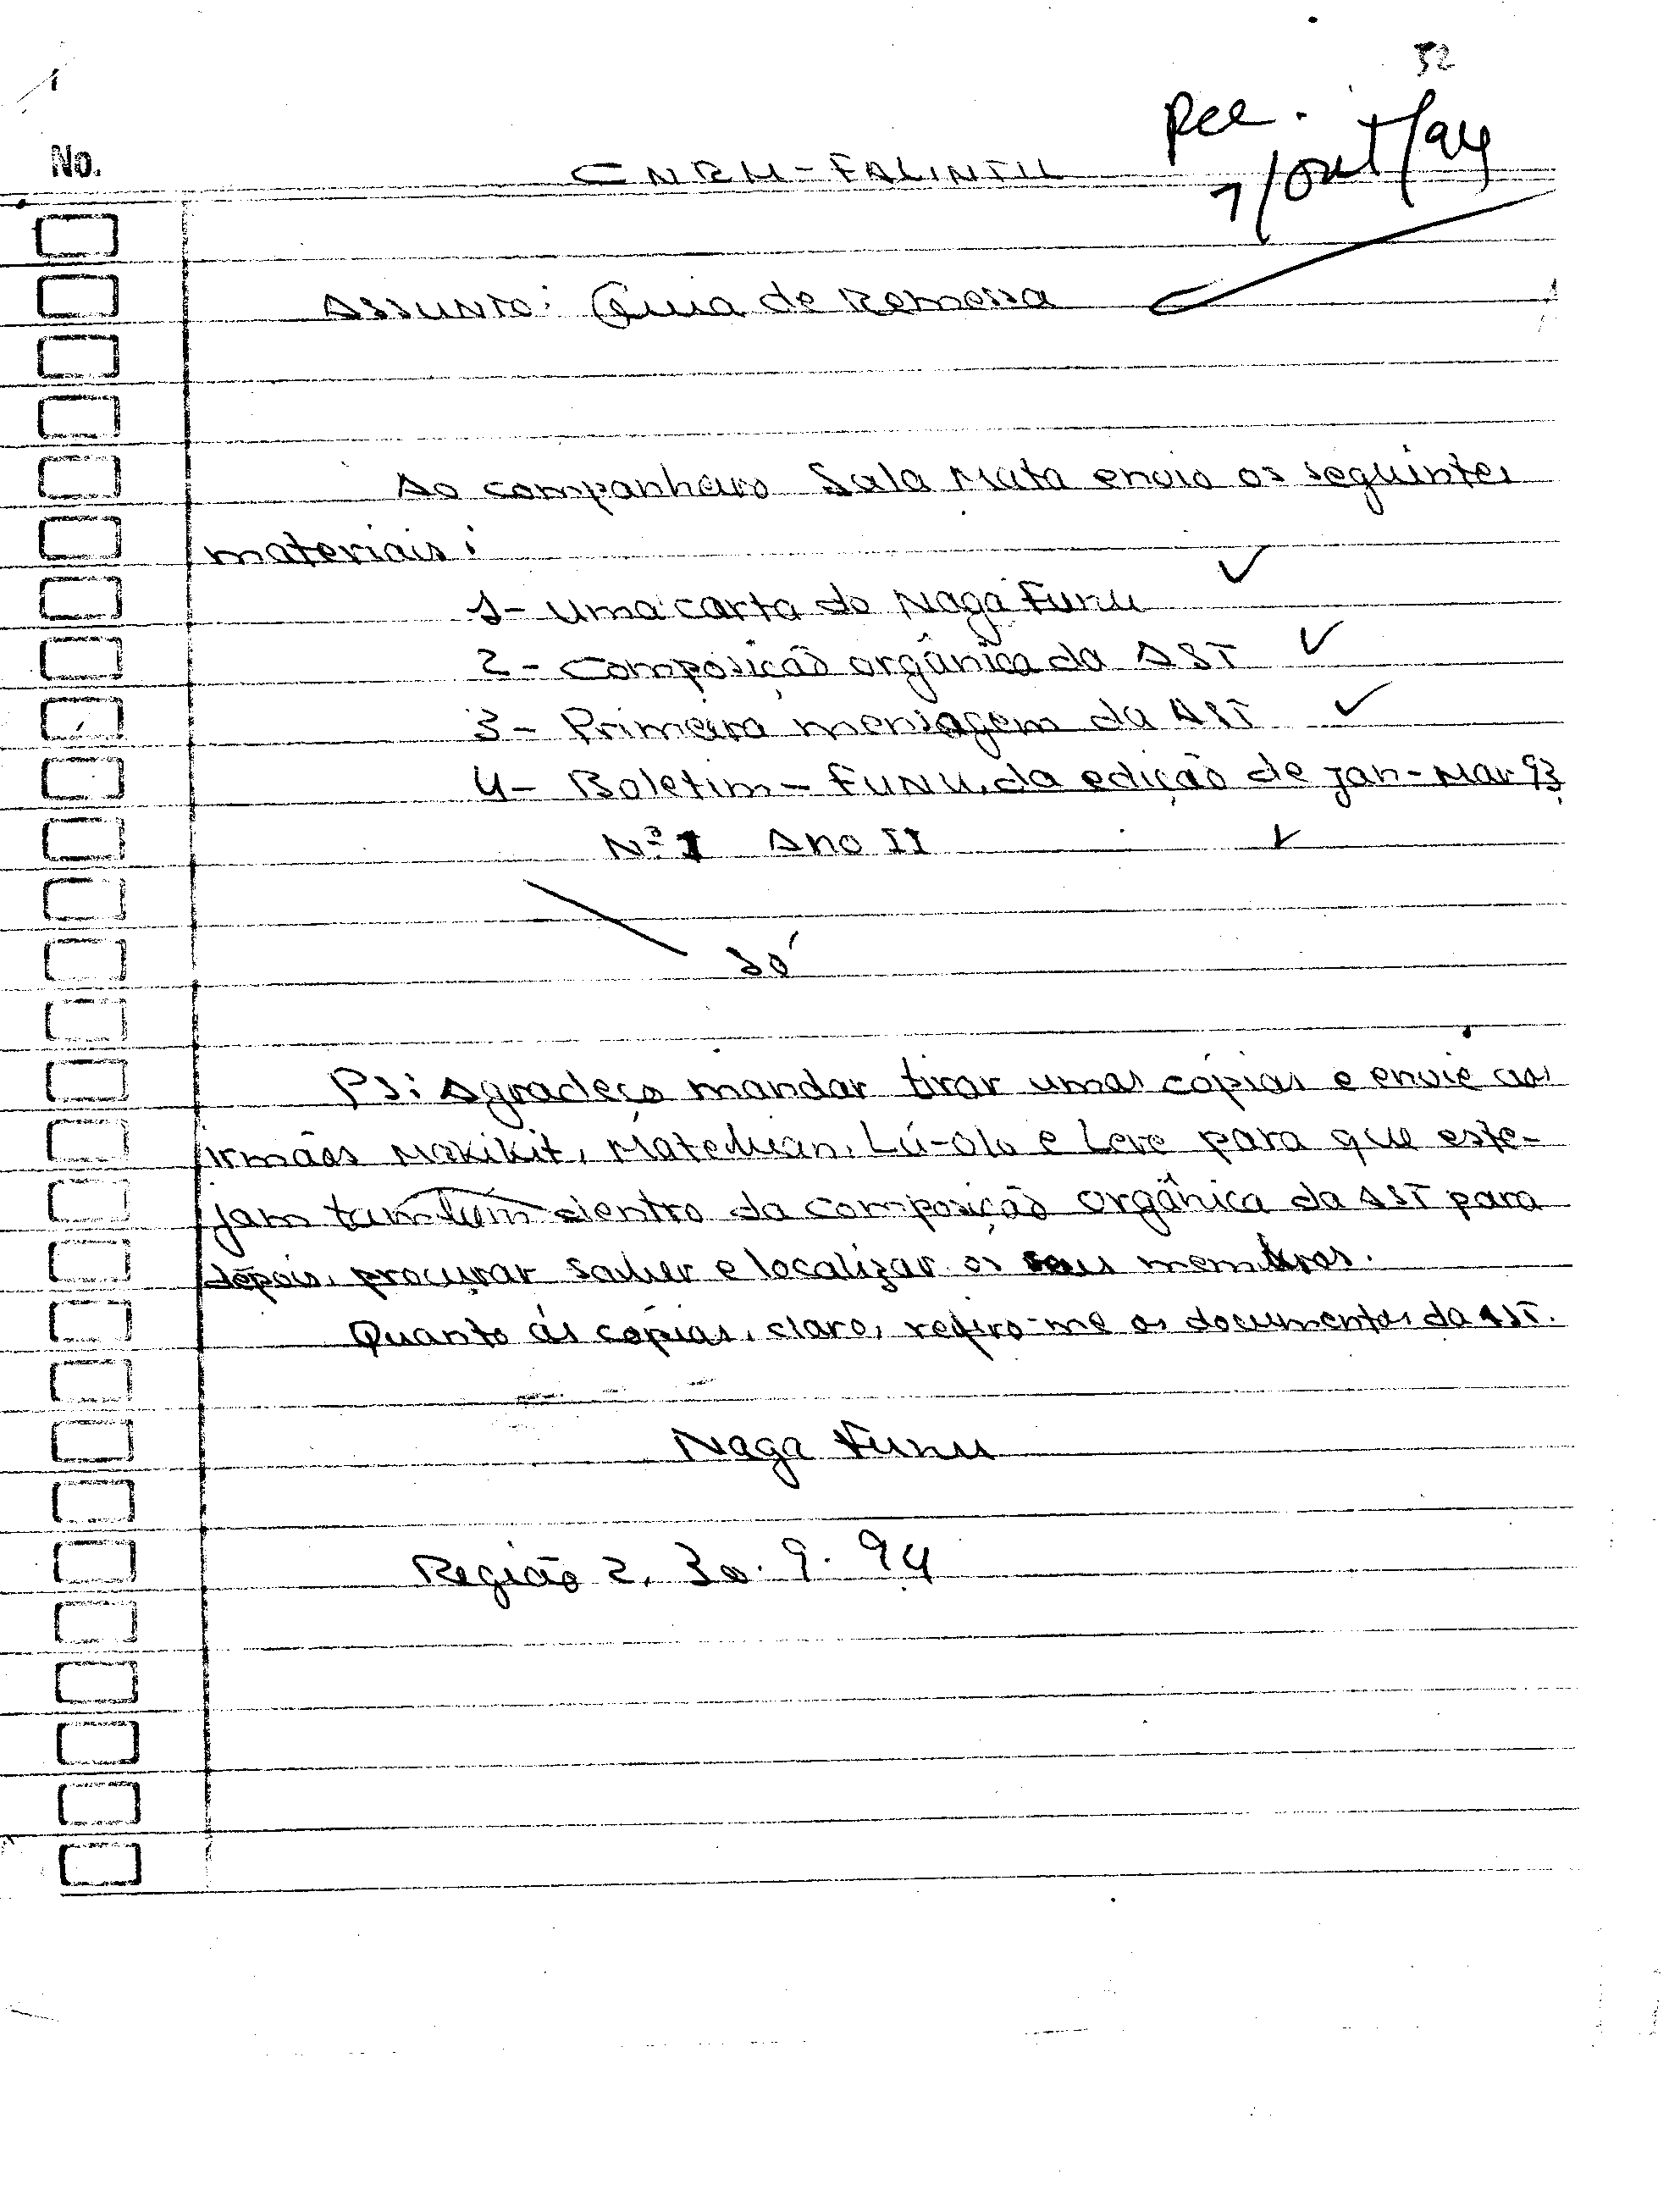 52
Rec.
7/out/94
No.
CNRM-FALINTIL
Assunto: Guia de Remessa
Ao companheiro Sala Mata envio os seguintes
materiais:
1- uma carta do Naga Funu ✓
2- Composição orgânica da AST ✓
3- Primeira mensagem da AST ✓
4- Boletim - FUNU, da edição de Jan-Mar 93
Nº 1 Ano II ✓
Só
PS: Agradeço mandar tirar umas cópias e envie aos
irmãos Makikit, Mateduan, Lú-Olo e Leve para que este-
jam também dentro da composição orgânica da AST para
depois, procurar saber e localizar os seus membros.
Quanto às cópias, claro, refiro-me os documentos da AST.
Naga Funu
Região 2, 30.9.94